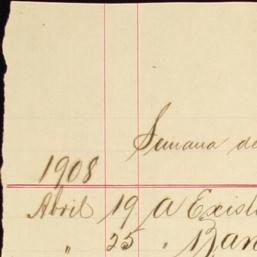 Semana de
1908
Abril 19 a Exist
" 25 " Ban